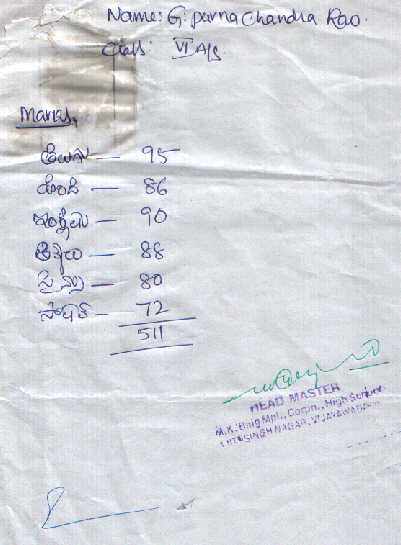 Name: G. purna chandra Rao.
Class: VI A/s
Marks,
తెలుగు — 95
హింది — 86
ఇంగ్లీషు — 90
లెక్కలు — 88
సైన్సు — 80
సోషల్ — 72
511
HEAD MASTER
M.K. Baig Mpl., Corpn., High School
SINGH NAGAR, VIJAYAWADA